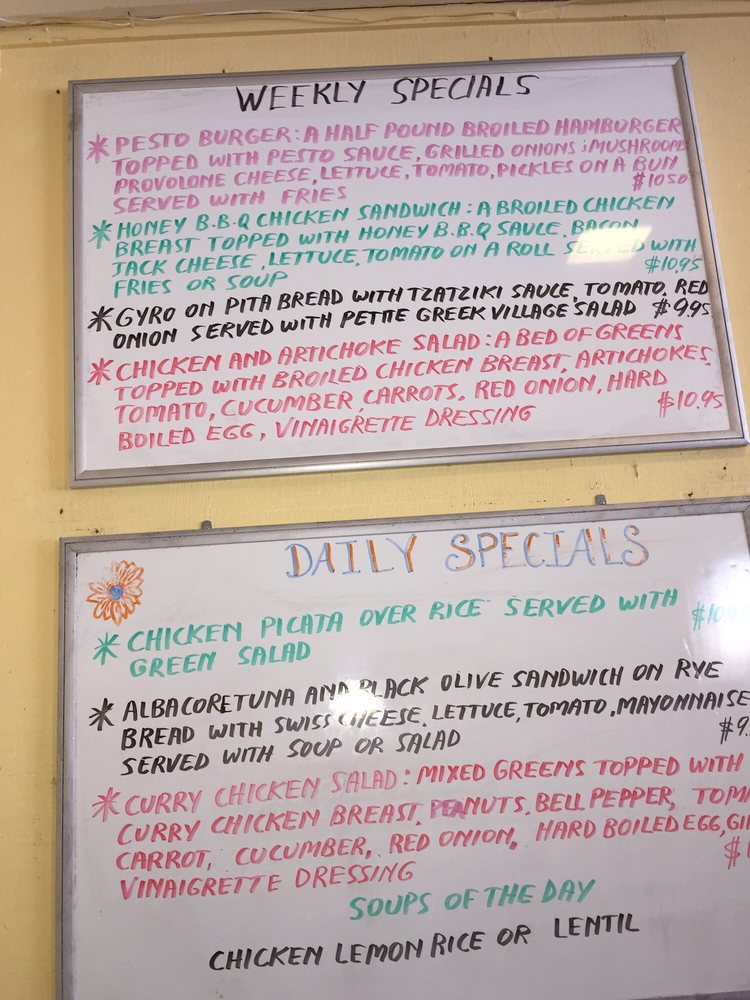 WEEKLY SPECIALS
* PESTO BURGER: A HALF POUND BROILED HAMBURGER
TOPPED WITH PESTO SAUCE, GRILLED ONIONS & MUSHROOMS
PROVOLONE CHEESE, LETTUCE, TOMATO, PICKLES ON A BUN
SERVED WITH FRIES $10.50
* HONEY B.B.Q CHICKEN SANDWICH: A BROILED CHICKEN
BREAST TOPPED WITH HONEY B.B.Q SAUCE, BACON
JACK CHEESE, LETTUCE, TOMATO ON A ROLL SERVED WITH
FRIES OR SOUP $10.95
* GYRO ON PITA BREAD WITH TZATZIKI SAUCE, TOMATO, RED
ONION SERVED WITH PETITE GREEK VILLAGE SALAD $9.95
* CHICKEN AND ARTICHOKE SALAD: A BED OF GREENS
TOPPED WITH BROILED CHICKEN BREAST, ARTICHOKES,
TOMATO, CUCUMBER, CARROTS, RED ONION, HARD
BOILED EGG, VINAIGRETTE DRESSING $10.95
DAILY SPECIALS
* CHICKEN PICATA OVER RICE SERVED WITH
GREEN SALAD
* ALBACORE TUNA AND BLACK OLIVE SANDWICH ON RYE
BREAD WITH SWISS CHEESE, LETTUCE, TOMATO, MAYONNAISE
SERVED WITH SOUP OR SALAD
* CURRY CHICKEN SALAD: MIXED GREENS TOPPED WITH
CURRY CHICKEN BREAST, PEANUTS, BELL PEPPER,
CARROT, CUCUMBER, RED ONION, HARD BOILED EGG,
VINAIGRETTE DRESSING
SOUPS OF THE DAY
CHICKEN LEMON RICE OR LENTIL